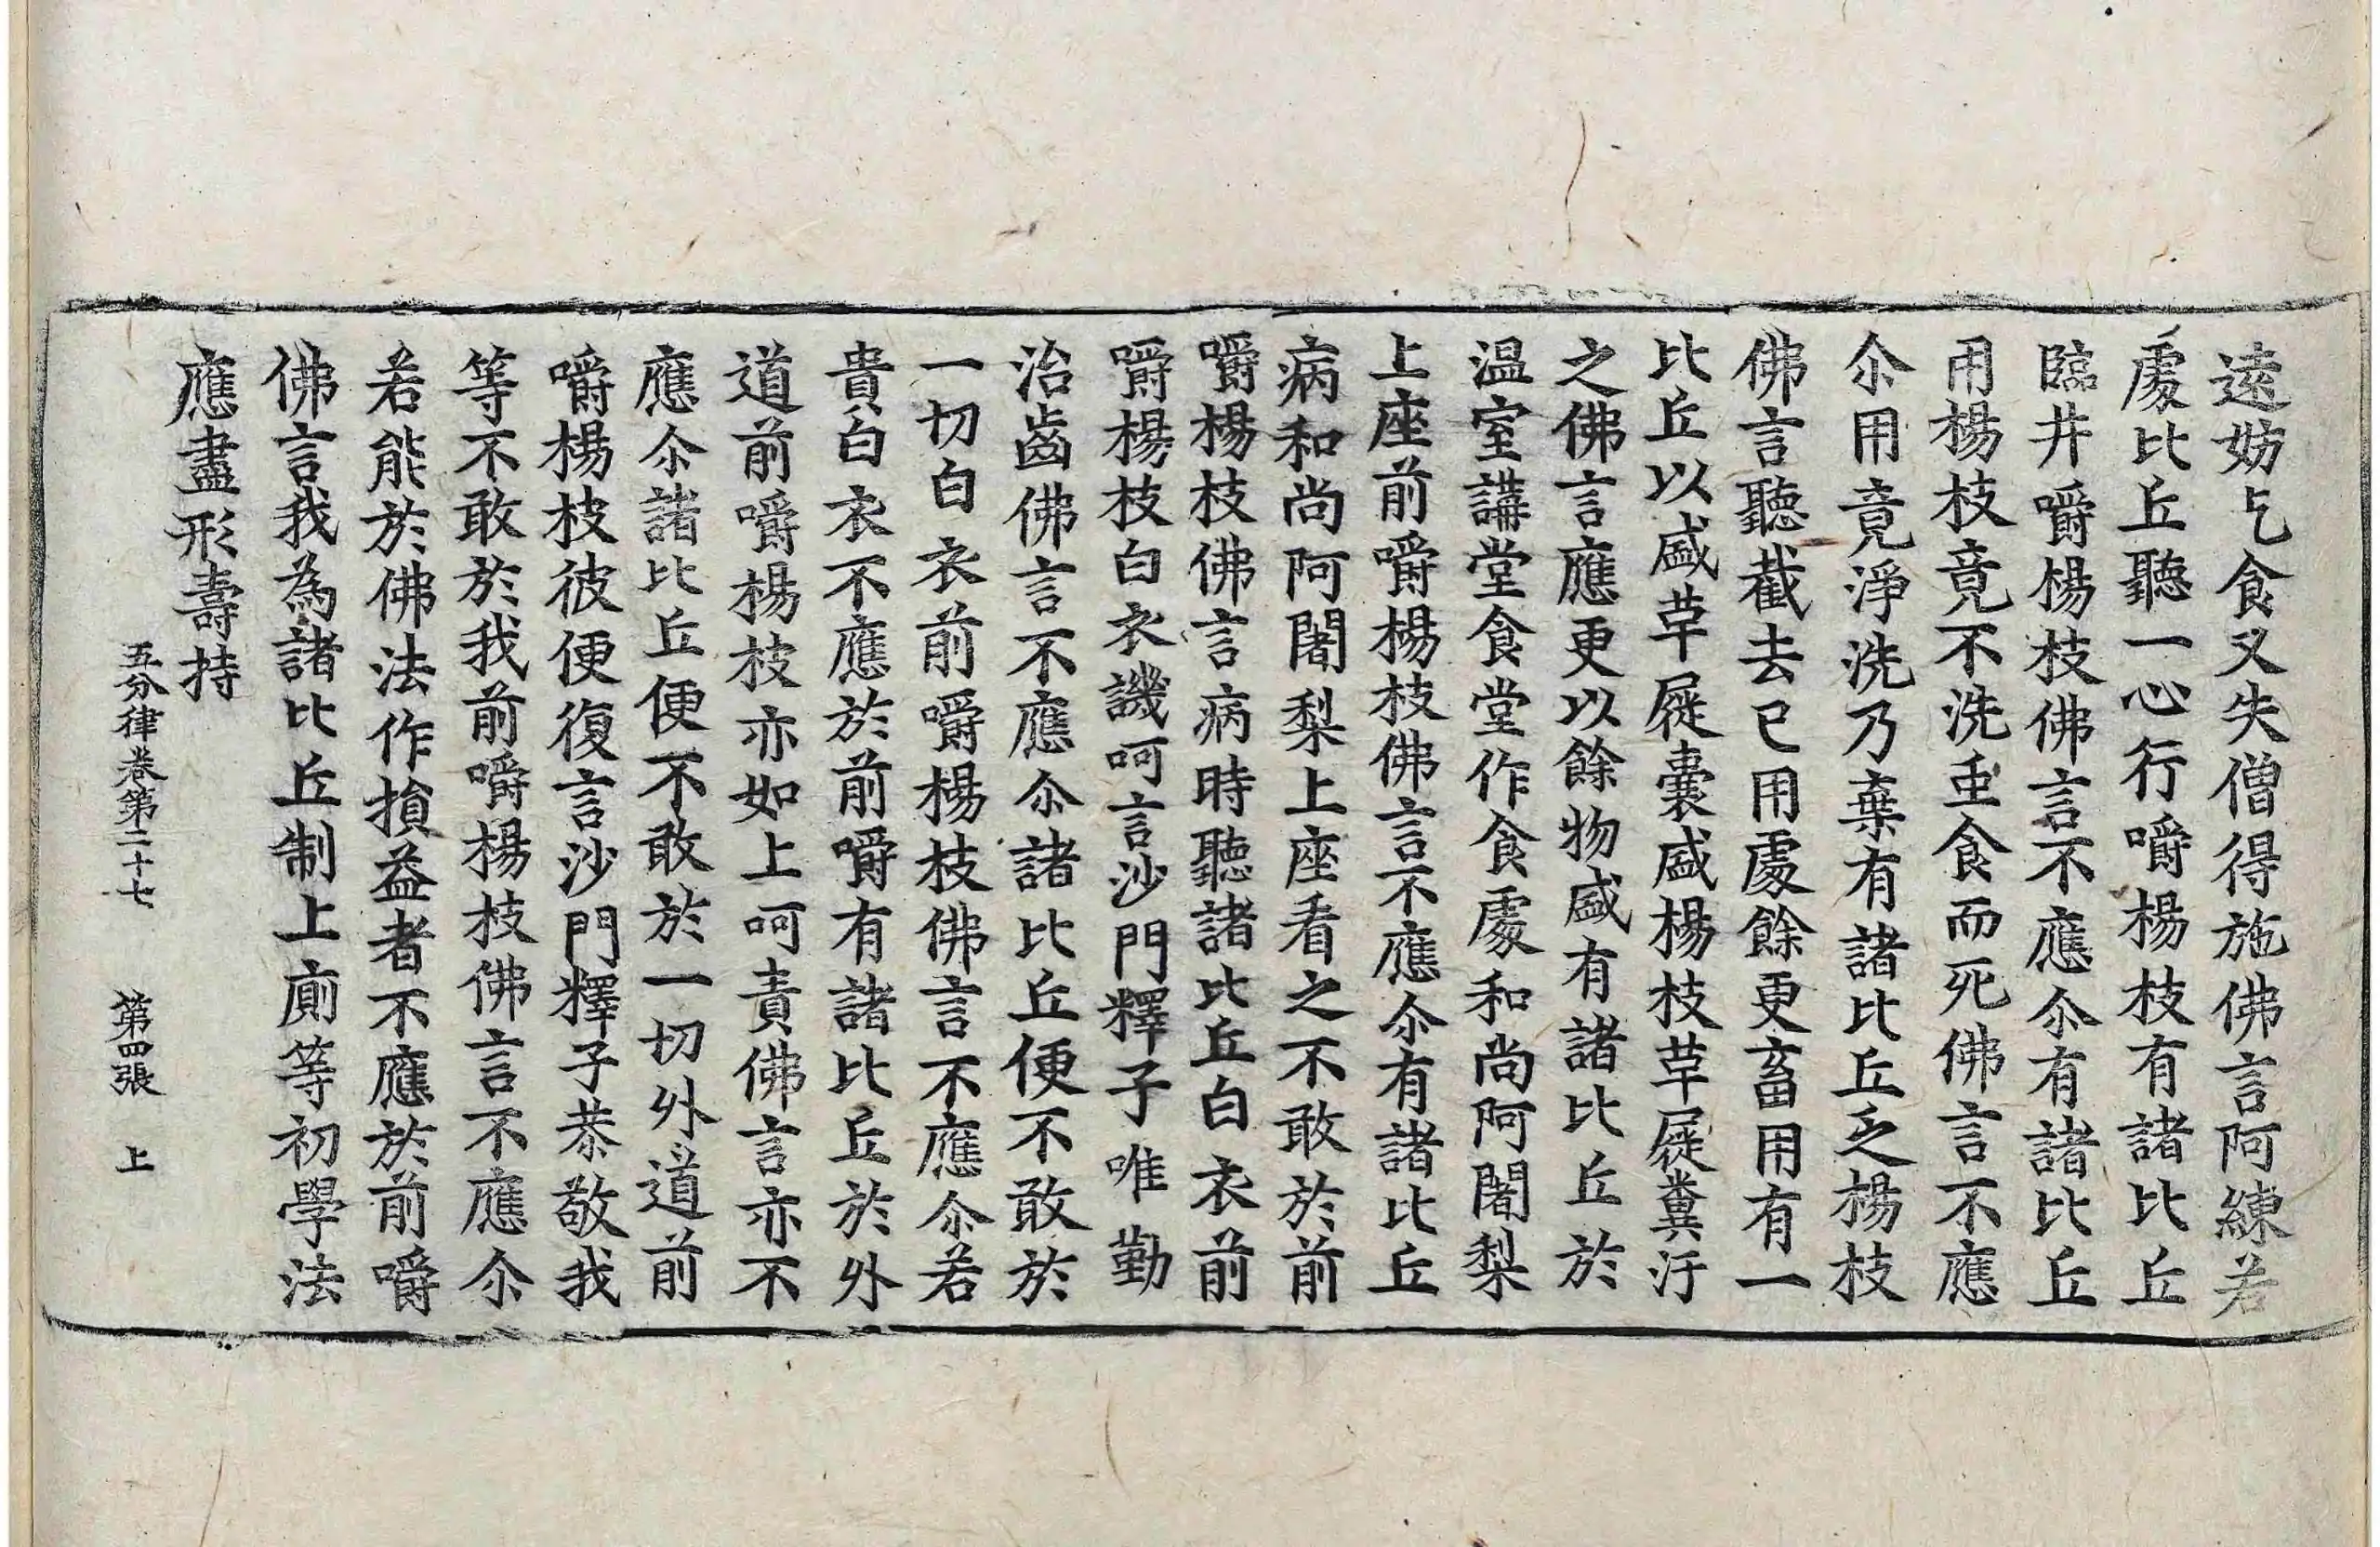 遠妨乞食又失僧得施佛言阿練若
處比丘聽一心行嚼楊枝有諸比丘
臨井嚼楊枝佛言不應尒有諸比丘
用楊枝竟不洗虫食而死佛言不應
尒用竟淨洗乃棄有諸比丘乏楊枝
佛言聽截去已用處餘更畜用有一
比丘以盛草屣囊盛楊枝草屣糞汙
之佛言應更以餘物盛有諸比丘於
温室講堂食堂作食處和尚阿闍梨
上座前嚼楊枝佛言不應尒有諸比丘
病和尚阿闍梨上座看之不敢於前
嚼楊枝佛言病時聽諸比丘白衣前
嚼楊枝白衣譏呵言沙門釋子唯勤
治齒佛言不應尒諸比丘便不敢於
一切白衣前嚼楊枝佛言不應尒若
貴白衣不應於前嚼有諸比丘於外
道前嚼楊枝亦如上呵責佛言亦不
應尒諸比丘便不敢於一切外道前
嚼楊枝彼便復言沙門釋子恭敬我
等不敢於我前嚼楊枝佛言不應尒
若能於佛法作損益者不應於前嚼
佛言我為諸比丘制上廁等初學法
應盡形壽持
五分律卷第二十七 第四張 上